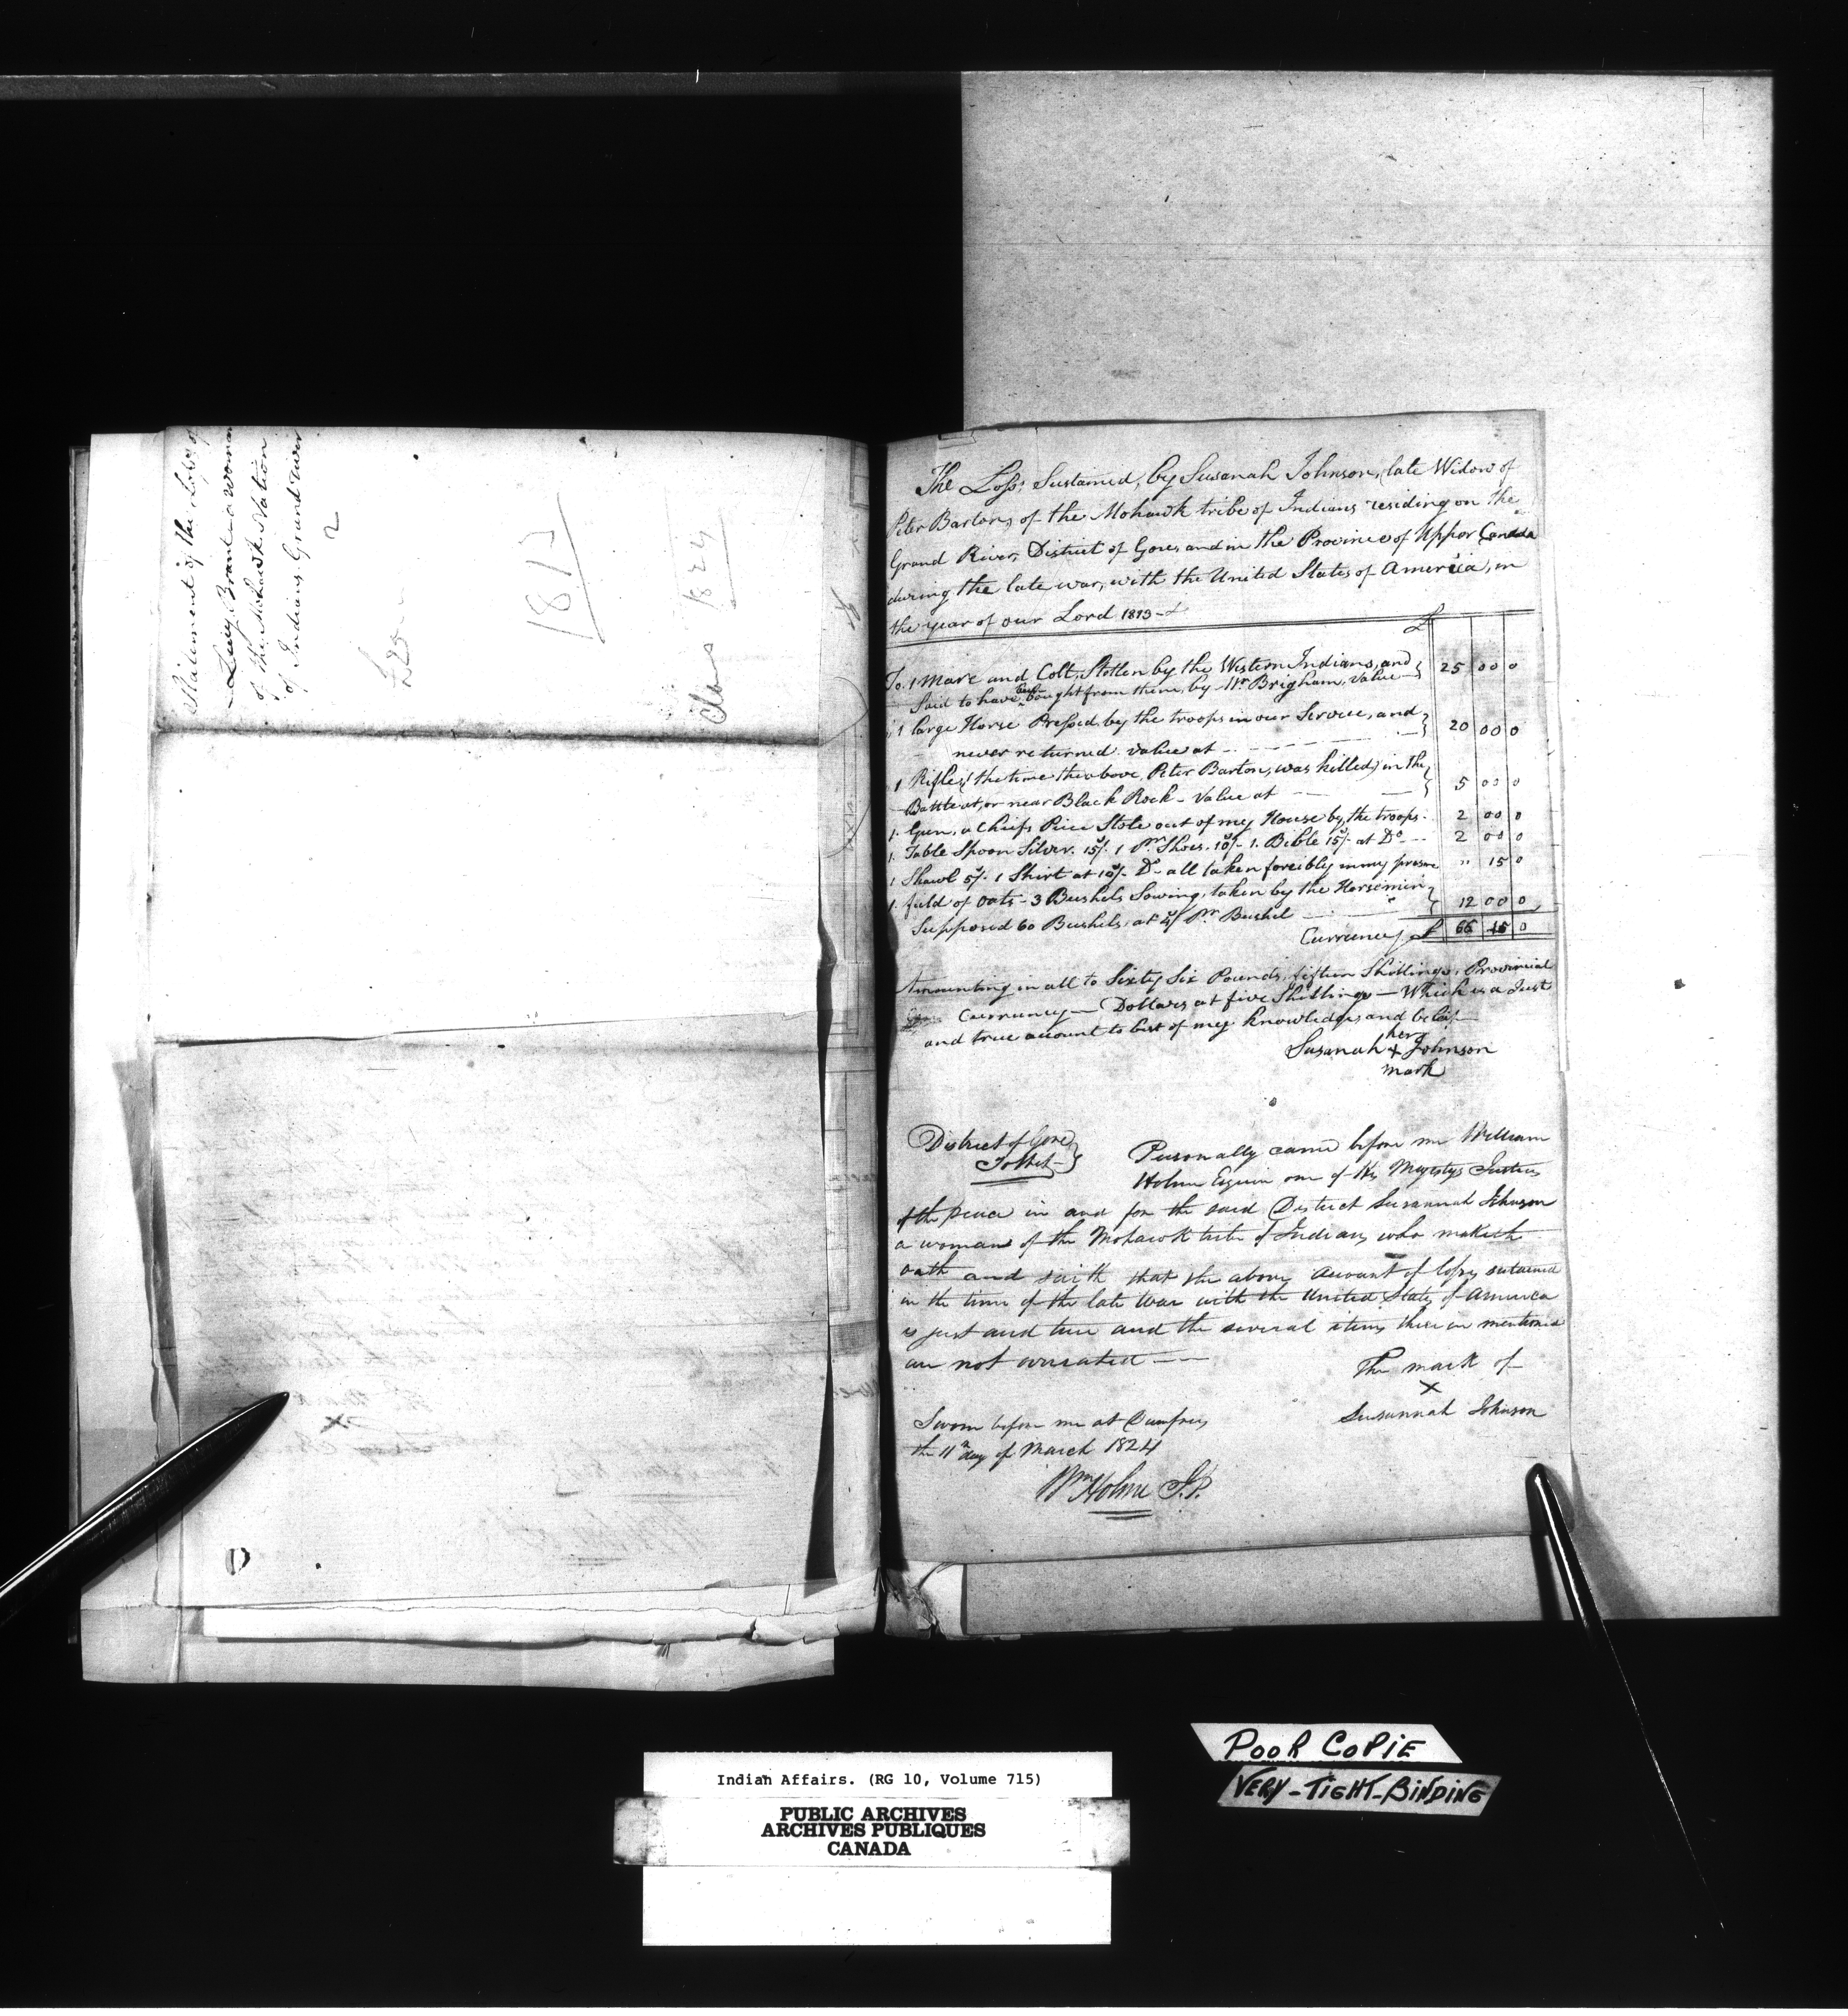 Statement of the Loss of
Lucy Brant a woman
of the Mohawk Nation
of Indians Grand river
2
1812
Claims 1824
The Loss, Sustained, by Susanah Johnson, late Widow of
Peter Barton, of the Mohawk tribe of Indians residing on the
Grand River, District of Gore, and in the Province of Upper Canada
during the late war, with the United States of America, in
the year of our Lord 1813
£
To. 1 Mare and Colt, Stollen by the Western Indians, and
Said to have been bought from them, by Mr Brigham, Value 25 00 0
" 1 large Horse Pressed by the troops in our Service, and
never returned. Value at 20 00 0
1 Rifle, (the time the above, Peter Barton, was killed) in the
Battle at, or near Black Rock - Value at 5 00 0
1. Gun, a Chiefs Piece Stole out of my House by, the troops. 2 00 0
1. Table Spoon Silver. 15/. 1 Pr Shoes. 10/- 1. Bible 15/- at Do 2 00 0
1 Shawl 5/. 1 Shirt at 10/. Do all taken forcibly in my presence " 15 0
1. field of Oats - 3 Bushels Sowing, taken by the Horsemen
Supposed 60 Bushels, at 4/ Pr Bushel 12 00 0
Currency £ 66 15 0
Amounting in all to Sixty Six Pounds, fifteen Shillings, Provincial
Currency — Dollars at five Shillings — Which is a Just
and true account to best of my knowledge, and belief
her
Susanah + Johnson
mark
District of Gore
To Wit
Personally came before me William
Holme Esquire one of His Majestys Justices
of the peace in and for the said District Susannah Johnson
a woman of the Mohawk tribe of Indians who maketh
oath and saith that the above account of loss, sustained
in the time of the late War with the United States of America
is just and true and the several items there in mentioned
are not overrated
The mark of
X
Susannah Johnson
Sworn before me at Dumfries
the 11th day of March 1824
Wm Holme J.P.
Indian Affairs. (RG 10, Volume 715)
PUBLIC ARCHIVES
ARCHIVES PUBLIQUES
CANADA
POOR COPIE
VERY-TIGHT-BINDING